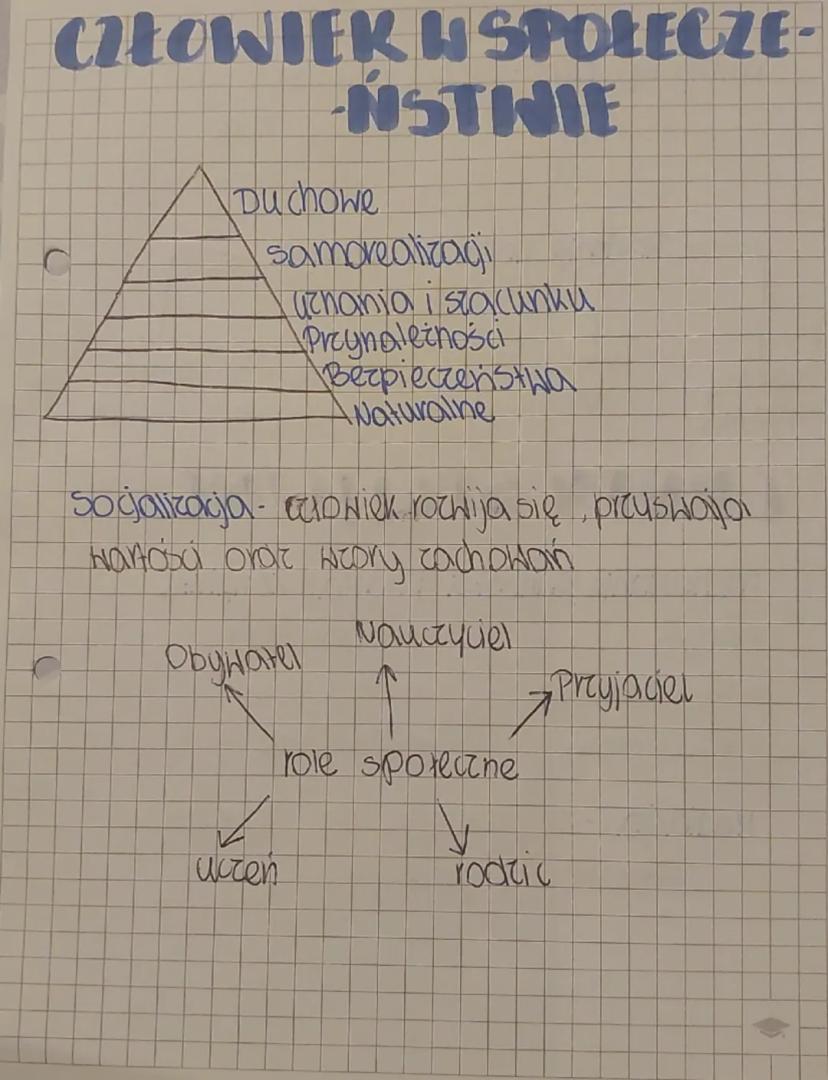 CZŁOWIEK W SPOŁECZE-
-ŃSTWIE
Duchowe
samorealizacji
uznania i szacunku
Przynależności
Bezpieczeństwa
Naturalne
Socjalizacja - człowiek rozwija się, przyswaja
wartości oraz wzory zachowań
Nauczyciel
Obywatel
Przyjaciel
role społeczne
uczeń
rodzic